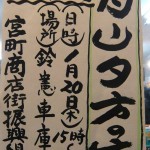 月山夕方
日時 1月20日(木) 15時
場所 鈴憲車庫
宮町商店街振興組